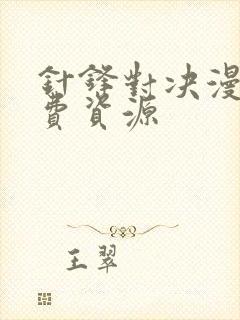 針鋒對决漫
費資源
王翠